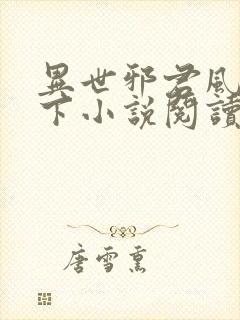 異世邪君風
下小說閱讀
唐雪熏